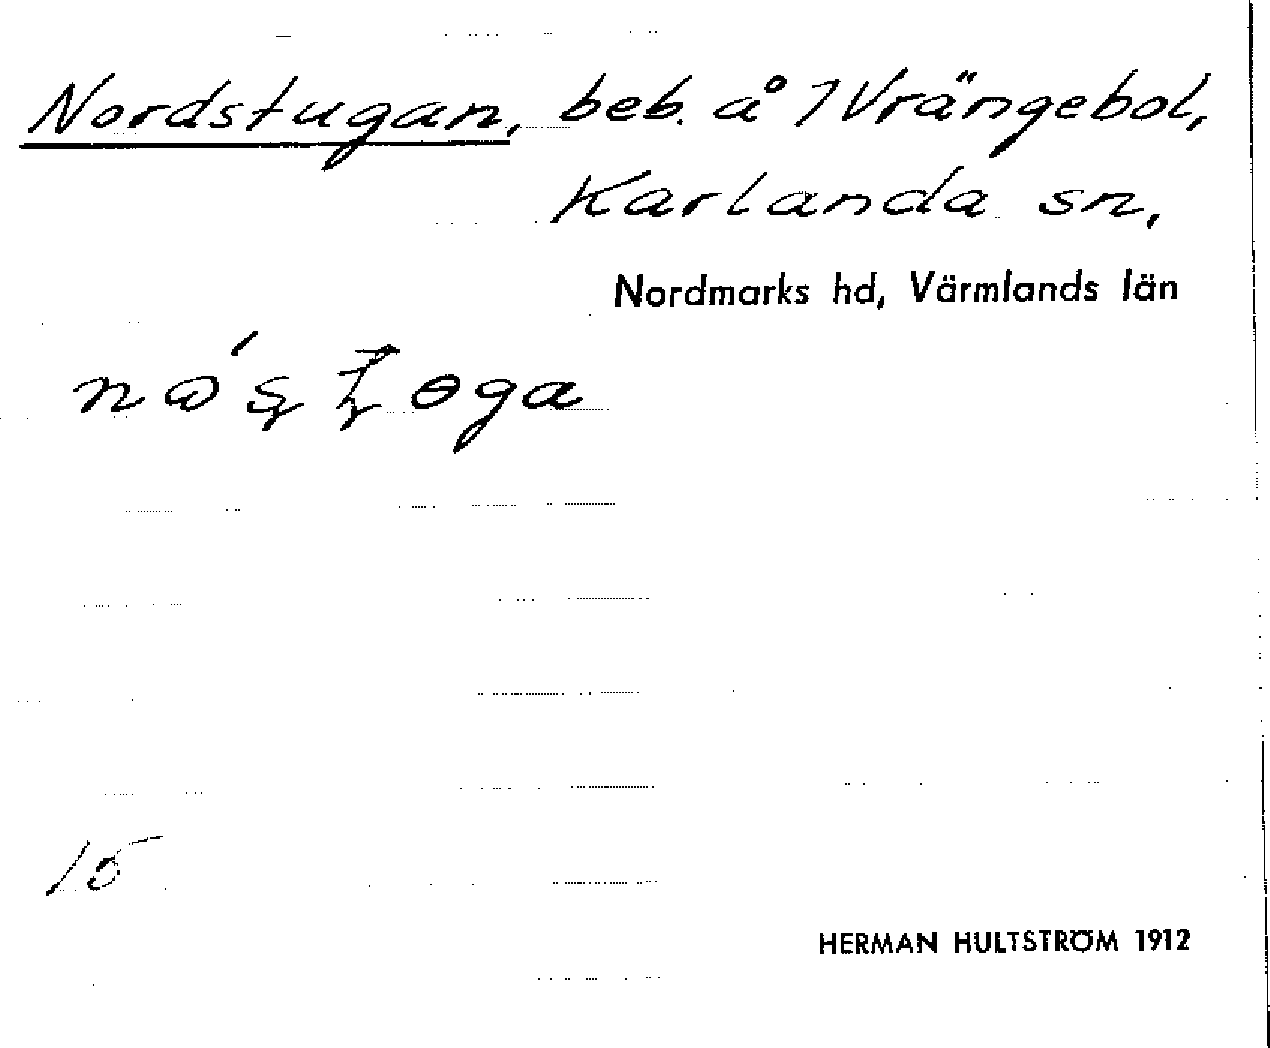 Nordstugan, beb. å 1 Vrängebol,
Karlanda sn,
Nordmarks hd, Värmlands län
15
HERMAN HULTSTRÖM 1912